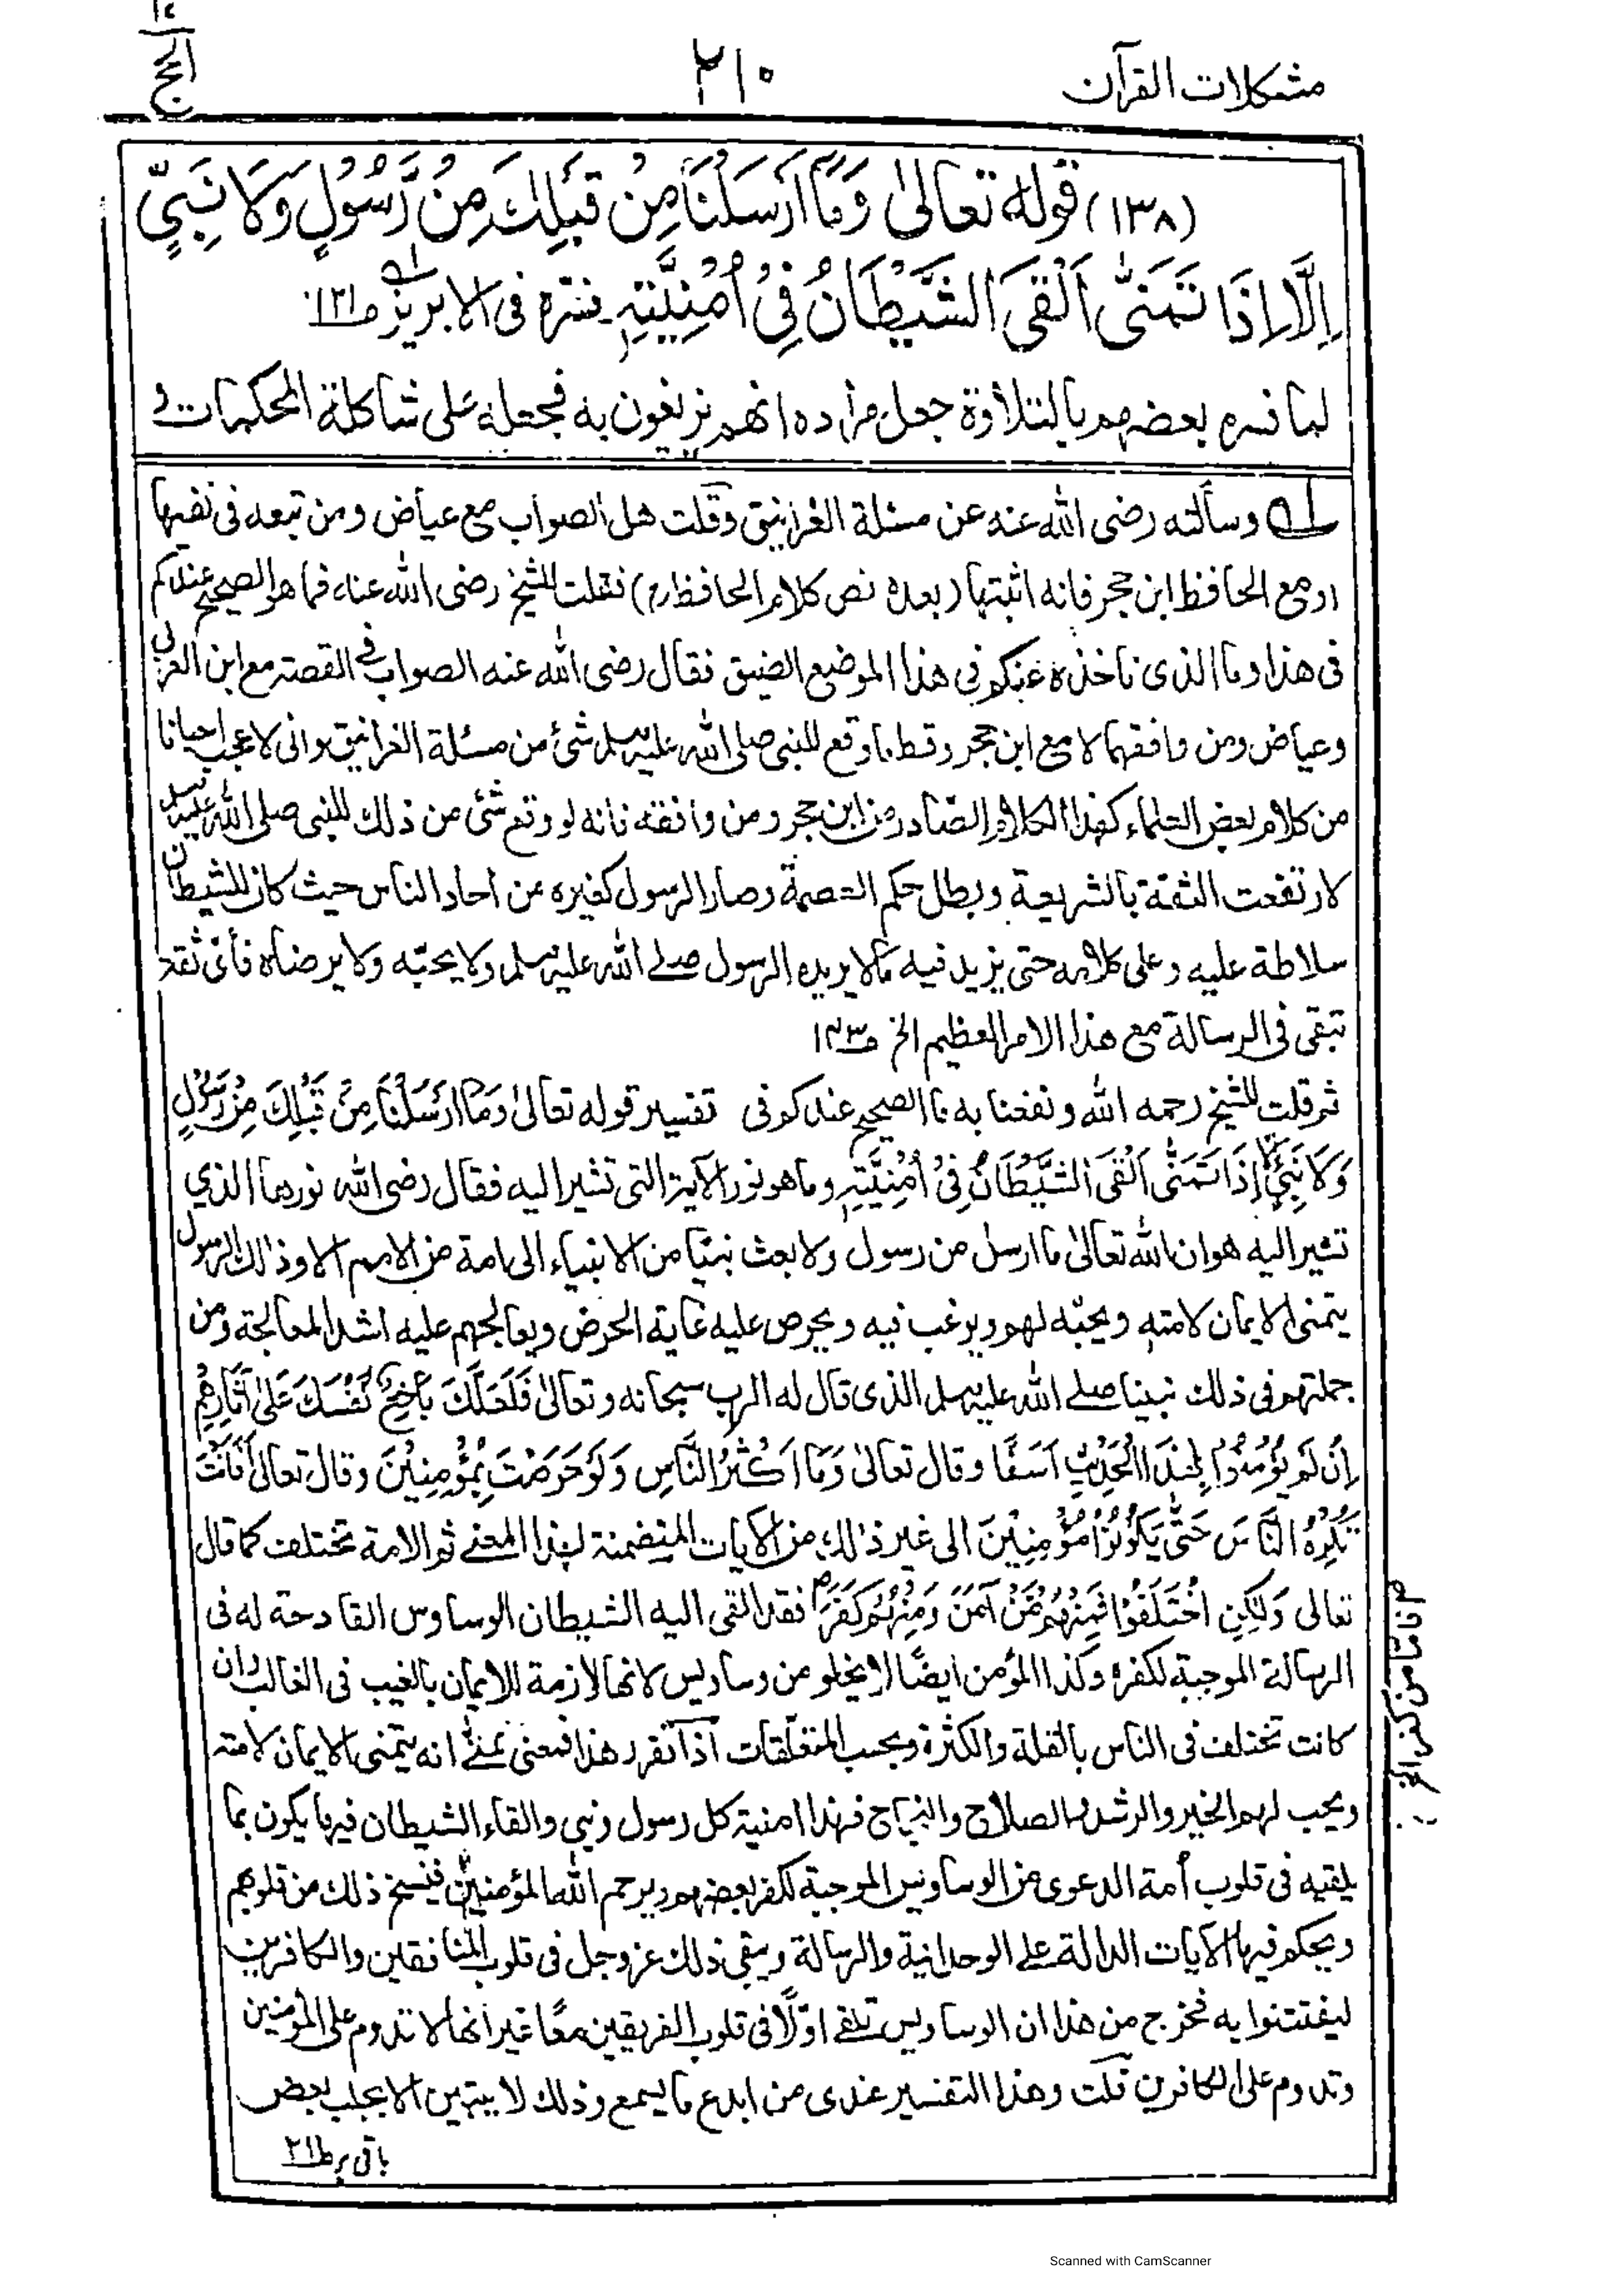 مشكلات القرآن
٢١٠
الحج
(١٣٨) قوله تعالىٰ وَمَآ اَرْسَلْنَا مِنْ قَبْلِكَ مِنْ رَّسُوْلٍ وَّلَا نَبِيٍّ
اِلَّآ اِذَا تَمَنّٰٓى اَلْقَى الشَّيْطَانُ فِيْ اُمْنِيَّتِهٖ فسره فى الابريز ص١٣١
لما فسره بعضهم بالتلاوة جعل مراده انهم يزيغون به فجعله على شاكلة المحكمات و
له وسألته رضى الله عنه عن مسئلة الغرانيق وقلت هل الصواب مع عياض ومن تبعه فى نفيها
او مع الحافظ ابن حجر فانه اثبتها (بعده نص كلام الحافظ رح) فقلت للشيخ رضى الله عنه فما هو الصحيح عندكم
فى هذا وما الذى ناخذه عنكم فى هذا الموضع الضيق فقال رضى الله عنه الصواب فى القصة مع ابن العربى
وعياض ومن وافقهما لا مع ابن حجر وقط ما وقع للنبى صلى الله عليه وسلم شئ من مسئلة الغرانيق وانى لاعجب احيانا
من كلام بعض العلماء كهذا الكلام الصادر من ابن حجر ومن وافقه فانه لو وقع شئ من ذلك للنبى صلى الله عليه وسلم
لارتفعت الثقة بالشريعة وبطل حكم العصمة وصار الرسول كغيره من احاد الناس حيث كان للشيطان
سلاطة عليه وعلى كلامه حتى يزيد فيه مالا يريده الرسول صلے الله عليه وسلم ولا يحبّه ولا يرضاه فأىّ ثقة
تبقى فى الرسالة مع هذا الامر العظيم الخ ص١٣٠
ثم قلت للشيخ رحمه الله ونفعنا به ما الصحيح عندكم فى تفسير قوله تعالىٰ وَمَآ اَرْسَلْنَا مِنْ قَبْلِكَ مِنْ رَّسُوْلٍ
وَلَا نَبِيٍّ اِلَّا اِذَا تَمَنّٰى اَلْقَى الشَّيْطَانُ فِيْ اُمْنِيَّتِهٖ وما هو نور الآية التى تشير اليه فقال رضى الله نورها الذي
تشير اليه هو ان الله تعالىٰ ما ارسل من رسول ولا بعث نبيّا من الانبياء الى امة من الامم الا وذلك الرسول
يتمنى الايمان لامته ويحبّه لهم ويرغب فيه ويحرص عليه غاية الحرص ويعالجهم عليه اشد المعالجة ومن
جملتهم فى ذلك نبينا صلے الله عليه وسلم الذى قال له الرب سبحانه وتعالىٰ فَلَعَلَّكَ بَاخِعٌ نَّفْسَكَ عَلٰٓى اٰثَارِهِمْ
اِنْ لَّمْ يُؤْمِنُوْا بِهٰذَا الْحَدِيْثِ اَسَفًا وقال تعالىٰ وَمَآ اَكْثَرُ النَّاسِ وَلَوْ حَرَصْتَ بِمُؤْمِنِيْنَ وقال تعالىٰ اَفَاَنْتَ
تُكْرِهُ النَّاسَ حَتّٰى يَكُوْنُوْا مُؤْمِنِيْنَ الى غير ذلك من الآيات المتضمنة لهذا المعنے ثم الامة تختلف كما قال
تعالى وَلٰكِنِ اخْتَلَفُوْا فَمِنْهُمْ مَّنْ اٰمَنَ وَمِنْهُمْ مَّنْ كَفَرَ فقد القى اليه الشيطان الوساوس القادحة له فى
الرسالة الموجبة لكفره وكذا المؤمن ايضًا لا يخلو من وساوس لانها لازمة للايمان بالغيب فى الغالب وان
كانت تختلف فى الناس بالقلة والكثرة وبحسب المتعلّقات اذا تقرر هذا فمعنى تمنّٰى انه يتمنى الايمان لامته
ويحب لهم الخير والرشد والصلاح والنجاح فهذا امنية كل رسول ونبى والقاء الشيطان فيها يكون بما
يلقيه فى قلوب أمة الدعوى من الوساوس الموجبة لكفر بعضهم ويرحم الله المؤمنين فينسخ ذلك من قلوبهم
ويحكم فيها الآيات الدالة على الوحدانية والرسالة ويبقى ذلك عز وجل فى قلوب المنافقين والكافرين
ليفتتنوا به فخرج من هذا ان الوساوس تلقے اوّلًا فى قلوب الفريقين معًا غير انها لا تدوم على المؤمنين
وتدوم على الكافرين قلت وهذا التفسير عندى من ابدع ما يسمع وذلك لا يتبين الا بجلب بعض
باقى بر ٢١١
Scanned with CamScanner